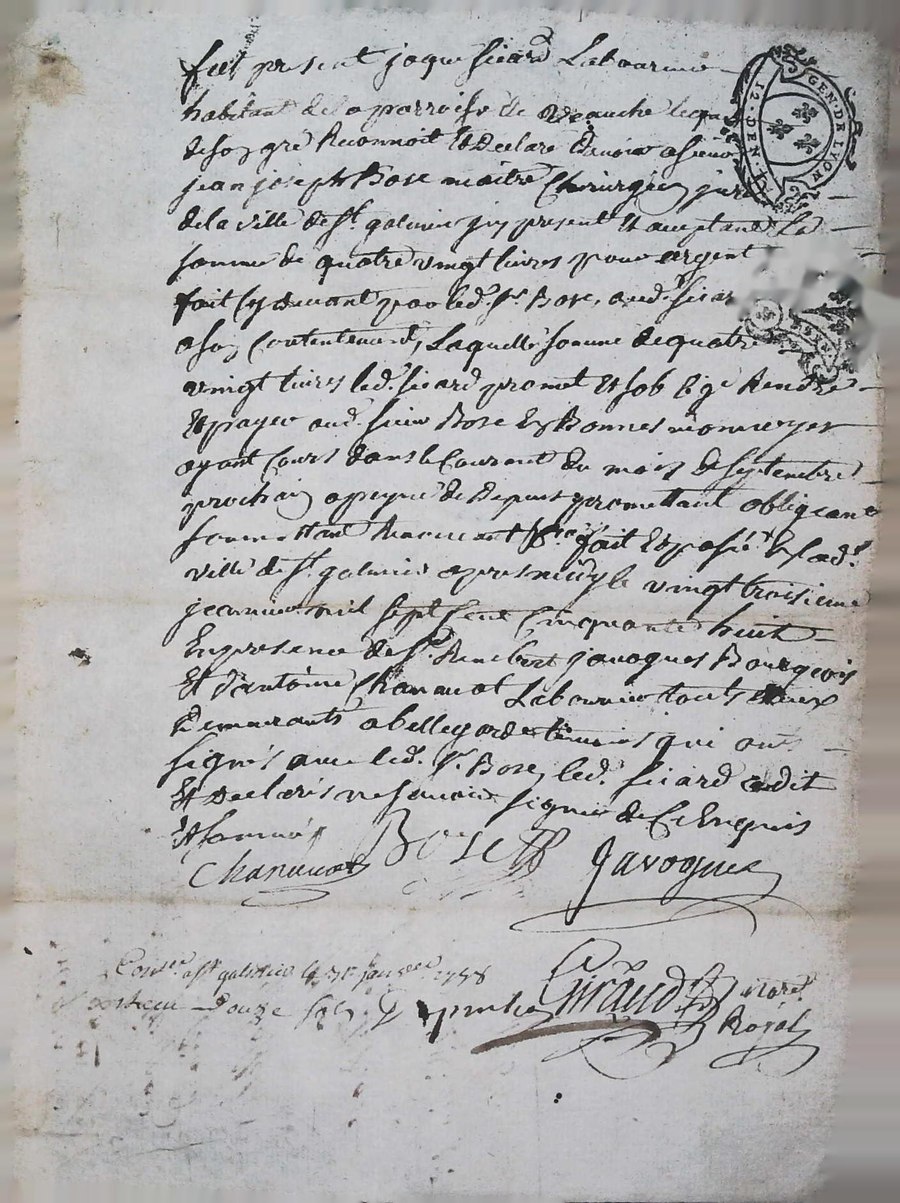 fut present jaque Sicard Laboureur
habitant de la parroisse de Veauche lequel
de son gré Reconnoit Et Declare Devoir a sieur
jean joseph Bose maitre Chirurgien juré
de la ville de St. galmier icy present Et acceptant La
somme de quatre vingt livres pour argent
fait Cy devant par led. Sr. Bose, aud. sicard
a son Contentement, Laquelle somme de quatre
vingt livres led. sicard promet Et s'oblige Rendre
Et payer aud. sieur Bose En Bonnes monnoyes
ayant Cours dans le Courant du mois de septembre
prochain a peyne de Depens promettant obligeant
soumettant Renonceant fait Et passé En lad.
ville de St. galmier apres midy le vingt troisieme
janvier mil sept Cent Cinquante huit
En presence de Sr. Rembert javogues Bourgeois
Et d'antoine Chanavat Laboureur touts deux
Demeurants a bellegarde témoins qui ont
signés avec led. Sr. Bose, led. sicard a dit
Et Declaré ne scavoir signer de Ce Enquis
Et sommé
Chanavat Bose Javogues
Conlé. a St galmier le 31e janvier 1758
Reçu Douze sols
Giraud notre.
Royal
GEN · DE LYON
12 · DEN ·